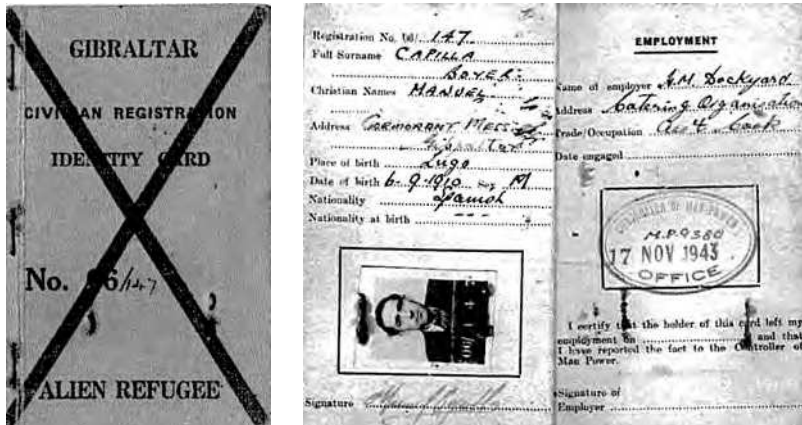 GIBRALTAR
CIVILIAN REGISTRATION
IDENTITY CARD
No. 66/147
ALIEN REFUGEE
Registration No. 66/ 147
Full Surname CAPILLA
BOYER
Christian Names MANUEL
Address CORMORANT MESS
Gibraltar
Place of birth Lugo
Date of birth 6-9-1910 Sex M
Nationality Spanish
Nationality at birth ---
Signature
EMPLOYMENT
Name of employer H.M. Dockyard
Address Catering Organisation
Trade/Occupation Cook
Date engaged
CONTROLLER OF MAN POWER
M.P. 9380
17 NOV 1943
OFFICE
I certify that the holder of this card left my
employment on and that
I have reported the fact to the Controller of
Man Power.
Signature of
Employer